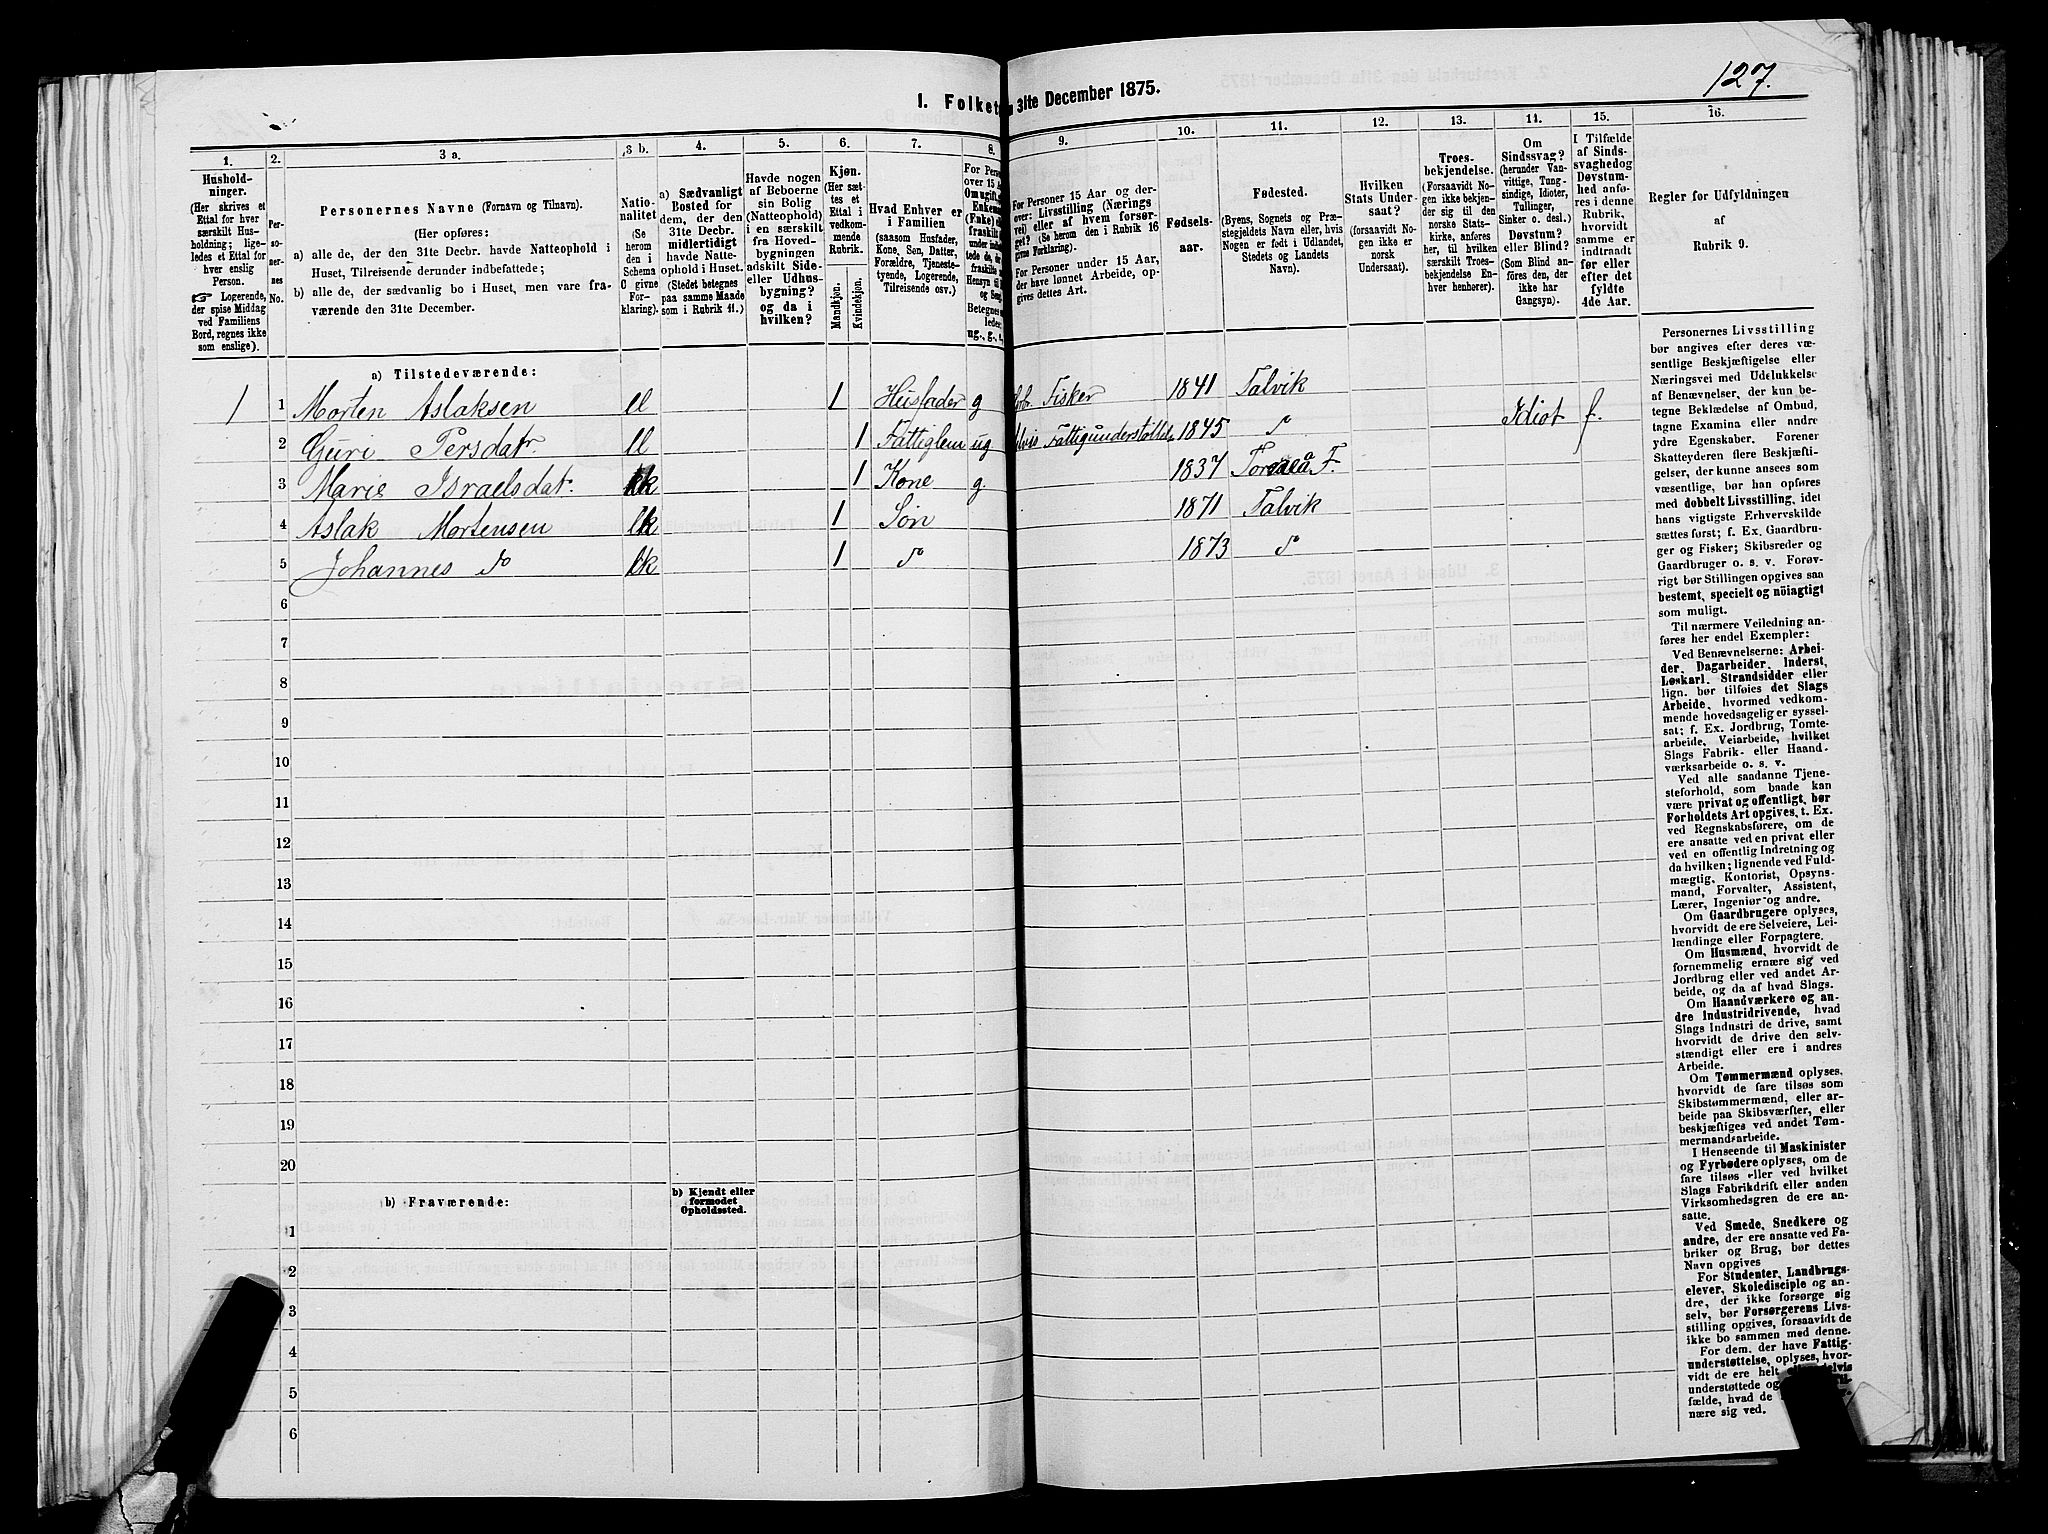 127.
I. Folket
31te December 1875.
1.
2.
3 a.
3 b.
4.
5.
6.
7.
8.
9.
10.
11.
12.
13.
14.
15.
16.
Hushold-
ninger.
(Her skrives et
Ettal for hver
særskilt Hus-
holdning; lige-
ledes et Ettal for
hver enslig
Person.
☞ Logerende,
der spise Middag
ved Familiens
Bord, regnes ikke
som enslige).
Per-
so-
ner-
nes
No.
Personernes Navne (Fornavn og Tilnavn).
(Her opføres:
a) alle de, der den 31te Decbr. havde Natteophold i
Huset, Tilreisende derunder indbefattede;
b) alle de, der sædvanlig bo i Huset, men vare fra-
værende den 31te December.
Natio-
nalitet
(Se
herom
den i
Schema
C givne
For-
klaring).
a) Sædvanligt
Bosted for
dem, der den
31te Decbr.
midlertidigt
havde Natte-
ophold i Huset.
(Stedet betegnes
paa samme Maade
som i Rubrik 11.)
Havde nogen
af Beboerne
sin Bolig
(Natteophold)
i en særskilt
fra Hoved-
bygningen
adskilt Side-
eller Udhus-
bygning?
og da i
hvilken?
Kjøn.
(Her sæt-
tes et
Ettal i
vedkom-
mende
Rubrik.
Mandkjøn.
Kvindekjøn.
Hvad Enhver er
i Familien
(saasom Husfader,
Kone, Søn, Datter,
Forældre, Tjeneste-
tyende, Logerende,
Tilreisende osv.)
For Perso
over 15 A
Omugift, g
Enkema
(Enke) e
fraskilt
ug., g., e.,
For Personer 15 Aar og der-
over: Livsstilling (Nærings
vei) eller af hvem forsør-
get? (Se herom den i Rubrik 16
givne Forklaring).
For Personer under 15 Aar,
der have lønnet Arbeide, op-
gives dettes Art.
Fødsels-
aar.
Fødested.
(Byens, Sognets og Præ-
stegjeldets Navn eller, hvis
Nogen er født i Udlandet,
Stedets og Landets
Navn).
Hvilken
Stats Under-
saat?
(forsaavidt No-
gen ikke er
norsk
Undersaat).
Troes-
bekjendelse.
(Forsaavidt No-
gen ikke bekjen-
der sig til den
norske Stats-
kirke, anføres
her, til hvilken
særskilt Troes-
bekjendelse En-
hver henhører).
Om
Sindssvag?
(herunder Van-
vittige, Tung-
sindige, Idioter,
Tullinger,
Sinker o. desl.)
Døvstum?
eller Blind?
(Som Blind an-
føres den, der
ikke har
Gangsyn).
I Tilfælde
af Sinds-
svaghedog
Døvstum-
hed anfø-
res i denne
Rubrik,
hvorvidt
samme er
indtraadt
før eller
efter det
fyldte
4de Aar.
Regler for Udfyldningen
af
Rubrik 9.
a) Tilstedeværende:
1 1 Morten Aslaksen ll 1 Husfader g Fisker 1841 Talvik
2 Guri Persdatr ll 1 Fattiglem ug delvis Fattigunderstøttet 1845 do Idiot f.
3 Marie Israelsdatr. kk 1 Kone g. 1837 F.
4 Aslak Mortensen lk 1 Søn 1871 Talvik
5 Johannes do lk 1 do 1873 do
6
7
8
9
10
11
12
13
14
15
16
17
18
19
20
b) Fraværende:
b) Kjendt eller
formodet
Opholdssted.
1
2
3
4
5
6
Personernes Livsstilling
bør angives efter deres væ-
sentlige Beskjæftigelse eller
Næringsvei med Udelukkelse
af Benævnelser, der kun be-
tegne Beklædelse af Ombud,
tagne Examina eller andre
ydre Egenskaber. Forener
Skatteyderen flere Beskjæfti-
gelser, der kunne ansees som
væsentlige, bør han opføres
med dobbelt Livsstilling, idet
hans vigtigste Erhvervskilde
sættes først; f. Ex. Gaardbru-
ger og Fisker; Skibsreder og
Gaardbruger o. s. v. Forøv-
rigt bør Stillingen opgives saa
bestemt, specielt og nöiagtigt
som muligt.
Til nærmere Veiledning an-
føres her endel Exempler:
Ved Benævnelserne: Arbei-
der, Dagarbeider, Inderst,
Løskarl, Strandsidder eller
lign. bør tilføies det Slags
Arbeide, hvormed vedkom-
mende hovedsagelig er syssel-
sat; f. Ex. Jordbrug, Tomte-
arbeide, Veiarbeide, hvilket
Slags Fabrik- eller Haand-
værksarbeide o. s. v.
Ved alle saadanne Tjene-
steforhold, som baade kan
være privat og offentligt, bør
Forholdets Art opgives, t. Ex.
ved Regnskabsførere, om de
ere ansatte ved en privat eller
ved en offentlig Indretning og
da hvilken; lignende ved Fuld-
mægtig, Kontorist, Opsyns-
mand, Forvalter, Assistent,
Lærer, Ingeniør og andre.
Om Gaardbrugere oplyses,
hvorvidt de ere Selveiere, Lei-
lændinge eller Forpagtere.
Om Husmænd, hvorvidt de
fornemmelig ernære sig ved
Jordbrug eller ved andet Ar-
beide, og da af hvad Slags.
Om Haandværkere og an-
dre Industridrivende, hvad
Slags Industri de drive, samt
hvorvidt de drive den selv-
stændigt eller ere i andres
Arbeide.
Om Tømmermænd oplyses,
hvorvidt de fare tilsøs som
Skibstømmermænd, eller ar-
beide paa Skibsværfter, eller
beskjæftiges ved andet Tøm-
mermandsarbeide.
I Henseende til Maskinister
og Fyrbødere oplyses, om de
fare tilsøs eller ved hvilket
Slags Fabrikdrift eller anden
Virksomhedsgren de ere an-
satte.
Ved Smede, Snedkere og
andre, der ere ansatte ved Fa-
briker og Brug, bør dettes
Navn opgives
For Studenter, Landbrugs-
elever, Skoledisciple og an-
dre, der ikke forsørge sig
selv, bør Forsørgerens Livs-
stilling opgives, forsaavidt de
ikke bo sammen med denne.
For dem, der have Fattig-
understøttelse, oplyses, hvor-
vidt de ere helt delvis
understøttede og
fælde, hvad de
nære sig ved.